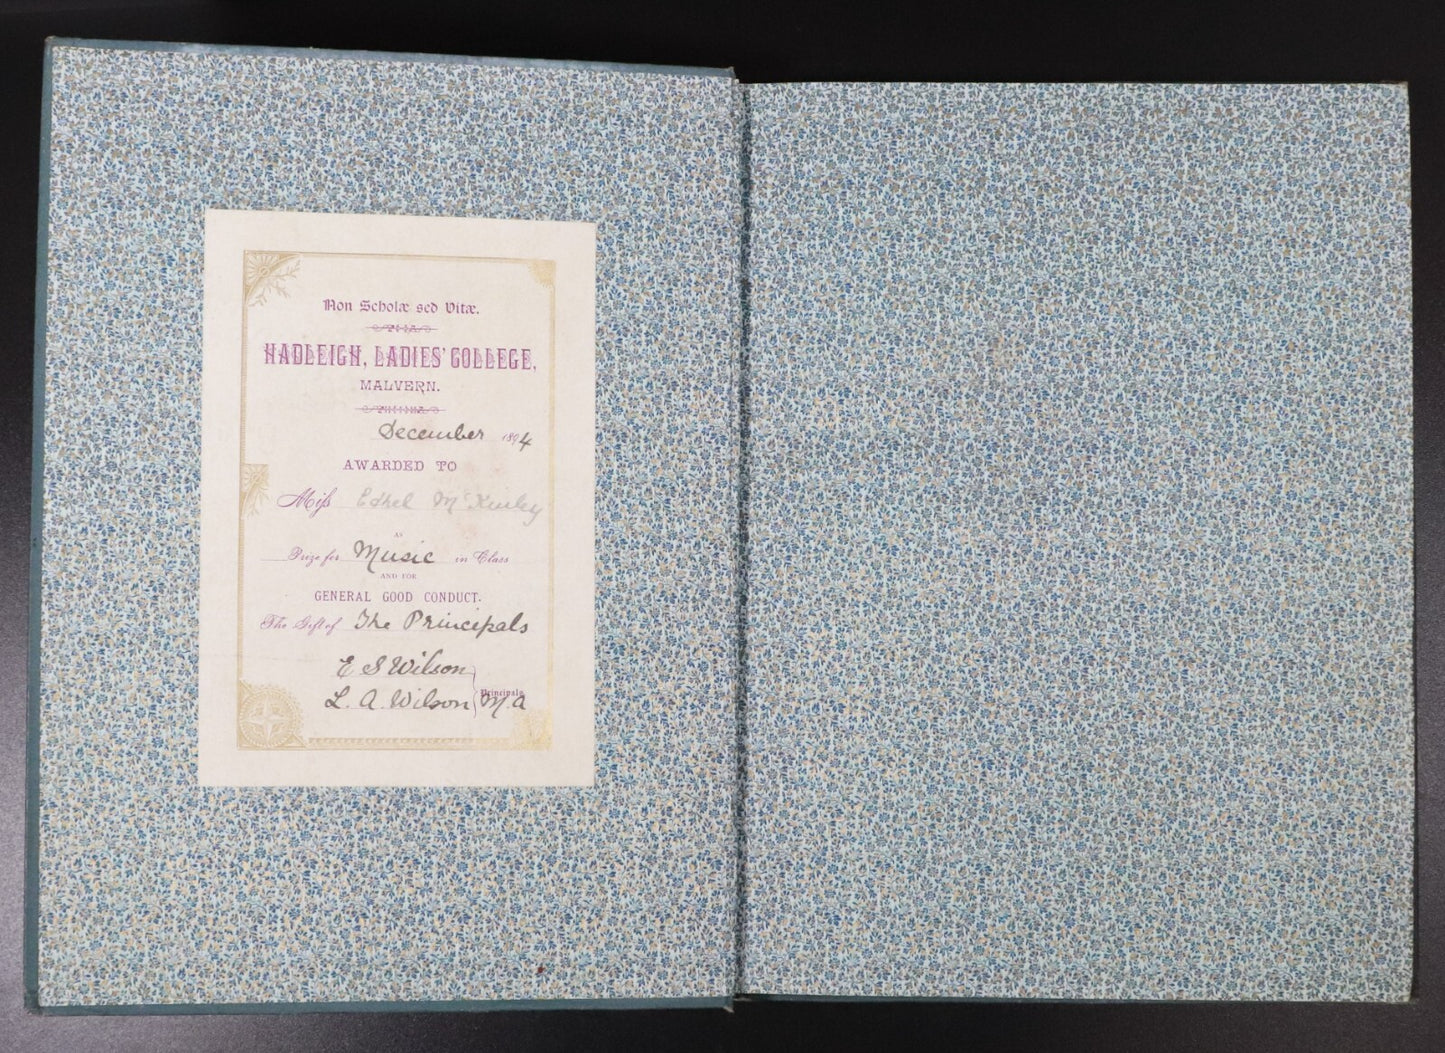 Non Scholæ sed Vitæ.
HADLEIGH, LADIES' COLLEGE,
MALVERN.
December 1894
AWARDED TO
Miss Ethel McKinley
AS
Prize for Music in Class
AND FOR
GENERAL GOOD CONDUCT.
The Gift of The Principals
E S Wilson
L. A. Wilson M.A
Principals